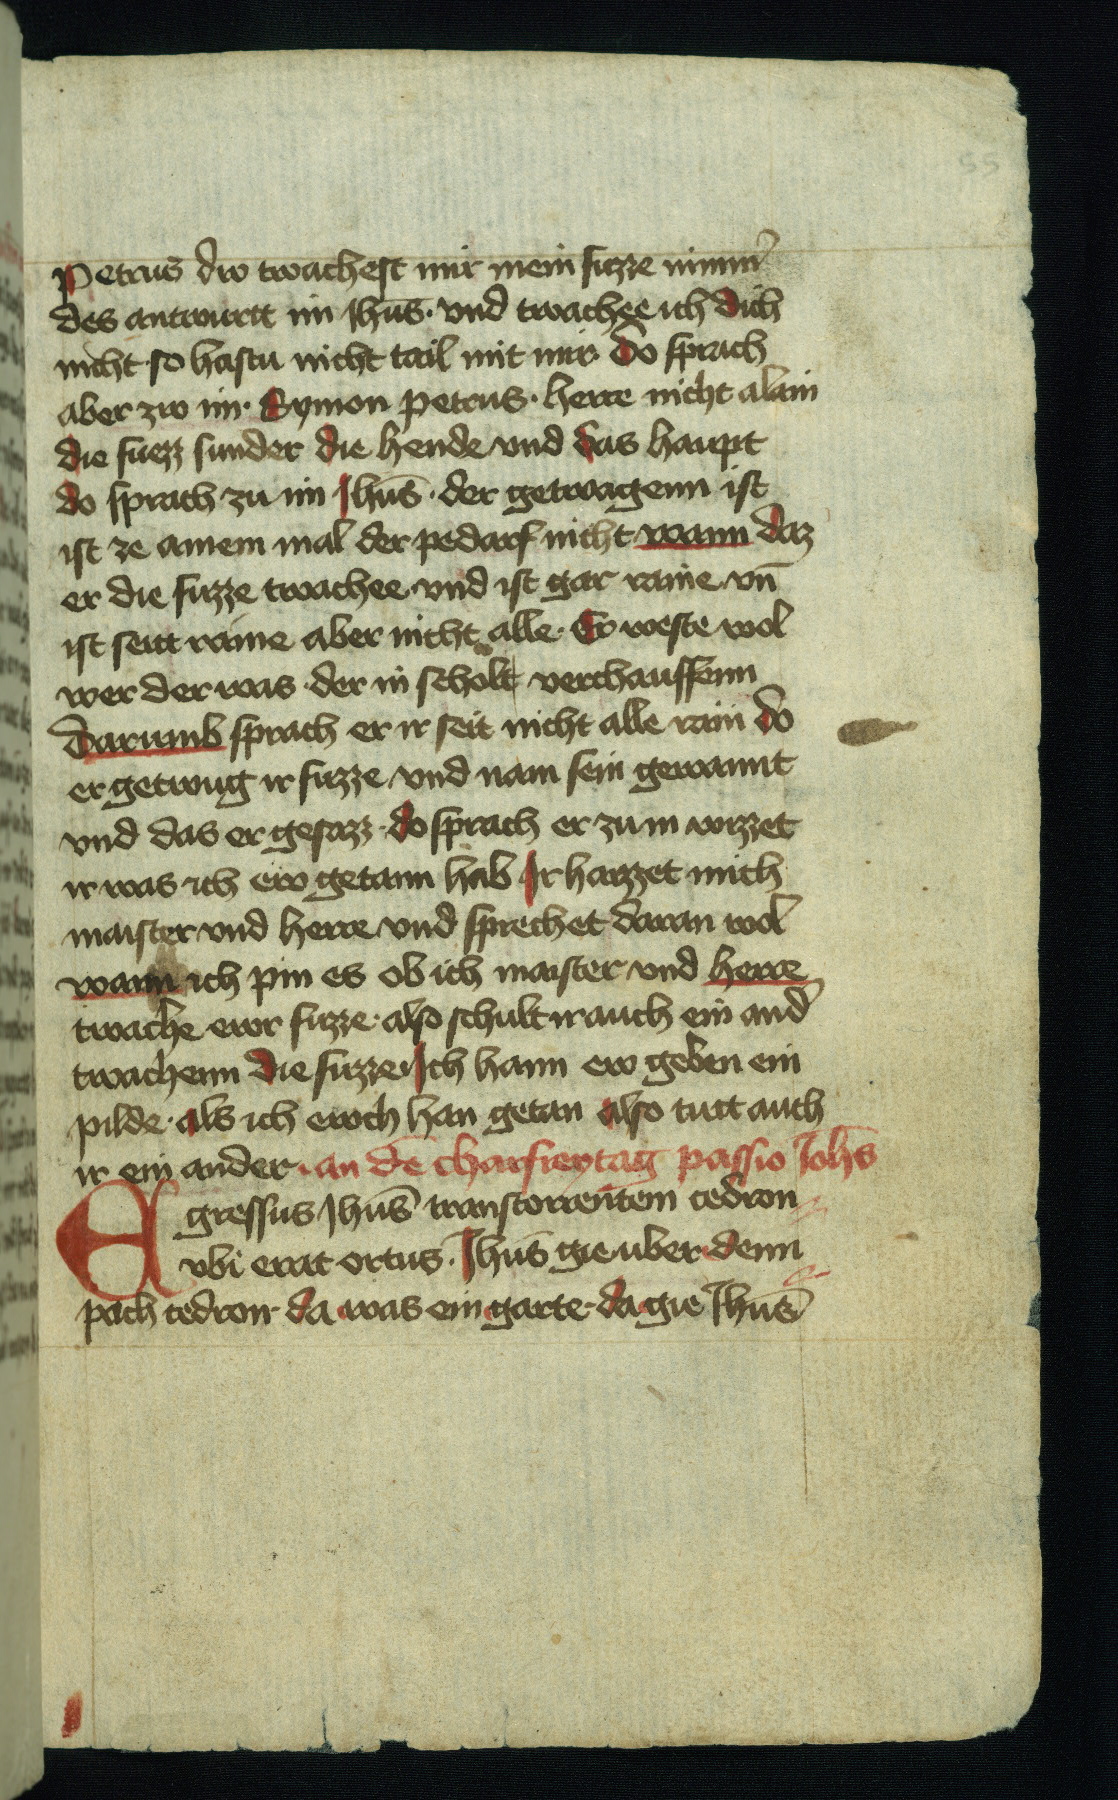 55
Petrus dw twachest mir mein fuzze nimmer̄
des antwurtt im Jhūs · vnd twachee ich dich
nicht so hastu nicht tail mit mir · Do sprach
aber zw im · Symon petrus · herre nicht alain
die fuezz sunder die hende vnd das haupt
do sprach zu im Jhūs · der getwagenn ist
ist ze ainem mal der pedarf nicht wann daz
er die fuzze twachee vnd ist gar raine vn̄
ist seitt raine aber nicht alle · Er weste wol
wer der was der in scholt verchauffenn
Darumb sprach er ir seit nicht alle rain do
er getwug ir fuzze vnd nam sein gewannt
vnd das er gesazz · do sprach er zu in wizzet
ir was ich ew getann hab Ir hazzet mich
maister vnd herre vnd sprechet daran wol
wann ich pin es ob ich maister vnd herre
twache ewr fuzze · also schult ir auch ein and̄
twachenn die fuzze Ich hann ew geben ein
pilde · als ich ewch han getan also tutt auch
ir ein ander · an dē charfreytag passio Johīs
Egressus Jhūs transtorrentem cedron
vbi erat ortus · Jhūs gie uber denn
pach cedron · da was ein garte · da gie Jhūs